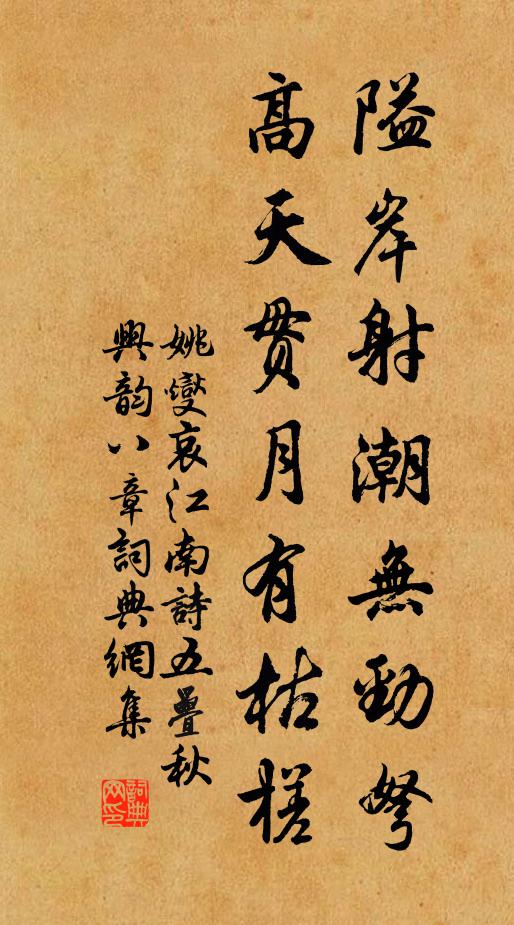 隘岸射潮無勁弩
高天貫月有枯槎
姚燮哀江南詩五疊秋
興韵八章詞典網集
詞典網印